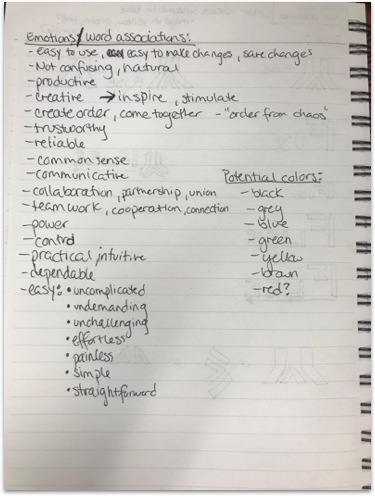 Emotions/word associations:
- easy to use, easy to make changes, save changes
- Not confusing, natural
- productive
- creative → inspire, stimulate
- create order, come together - "order from chaos"
- trustworthy
- reliable
- common sense
- communicative
- collaboration, partnership, union
- teamwork, cooperation, connection
- power
- control
- practical, intuitive
- dependable
- easy: • uncomplicated
• undemanding
• unchallenging
• effortless
• painless
• simple
• straightforward
Potential colors:
- black
- grey
- blue
- green
- yellow
- brown
- red?